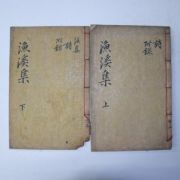 附錄
漁溪集
上
附錄
漁溪集
下